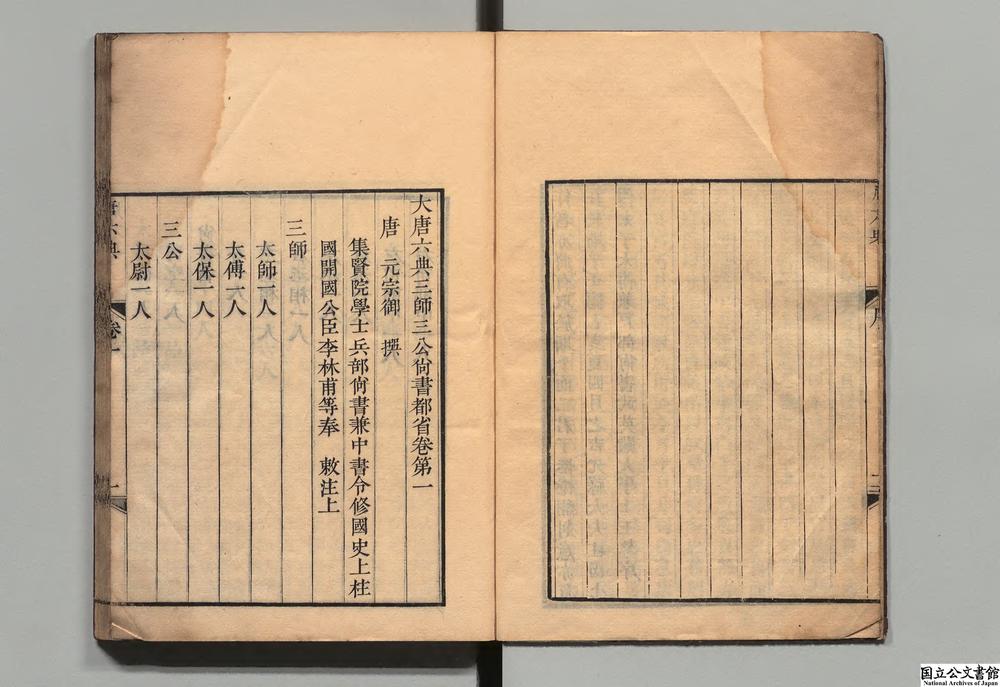 大唐六典三師三公尙書都省卷第一
唐 元宗御 撰
集賢院學士兵部尙書兼中書令修國史上柱
國開國公臣李林甫等奉 敕注上
三師
太師一人
太傅一人
太保一人
三公
太尉一人
卷一
一
二
国立公文書館
National Archives of Japan